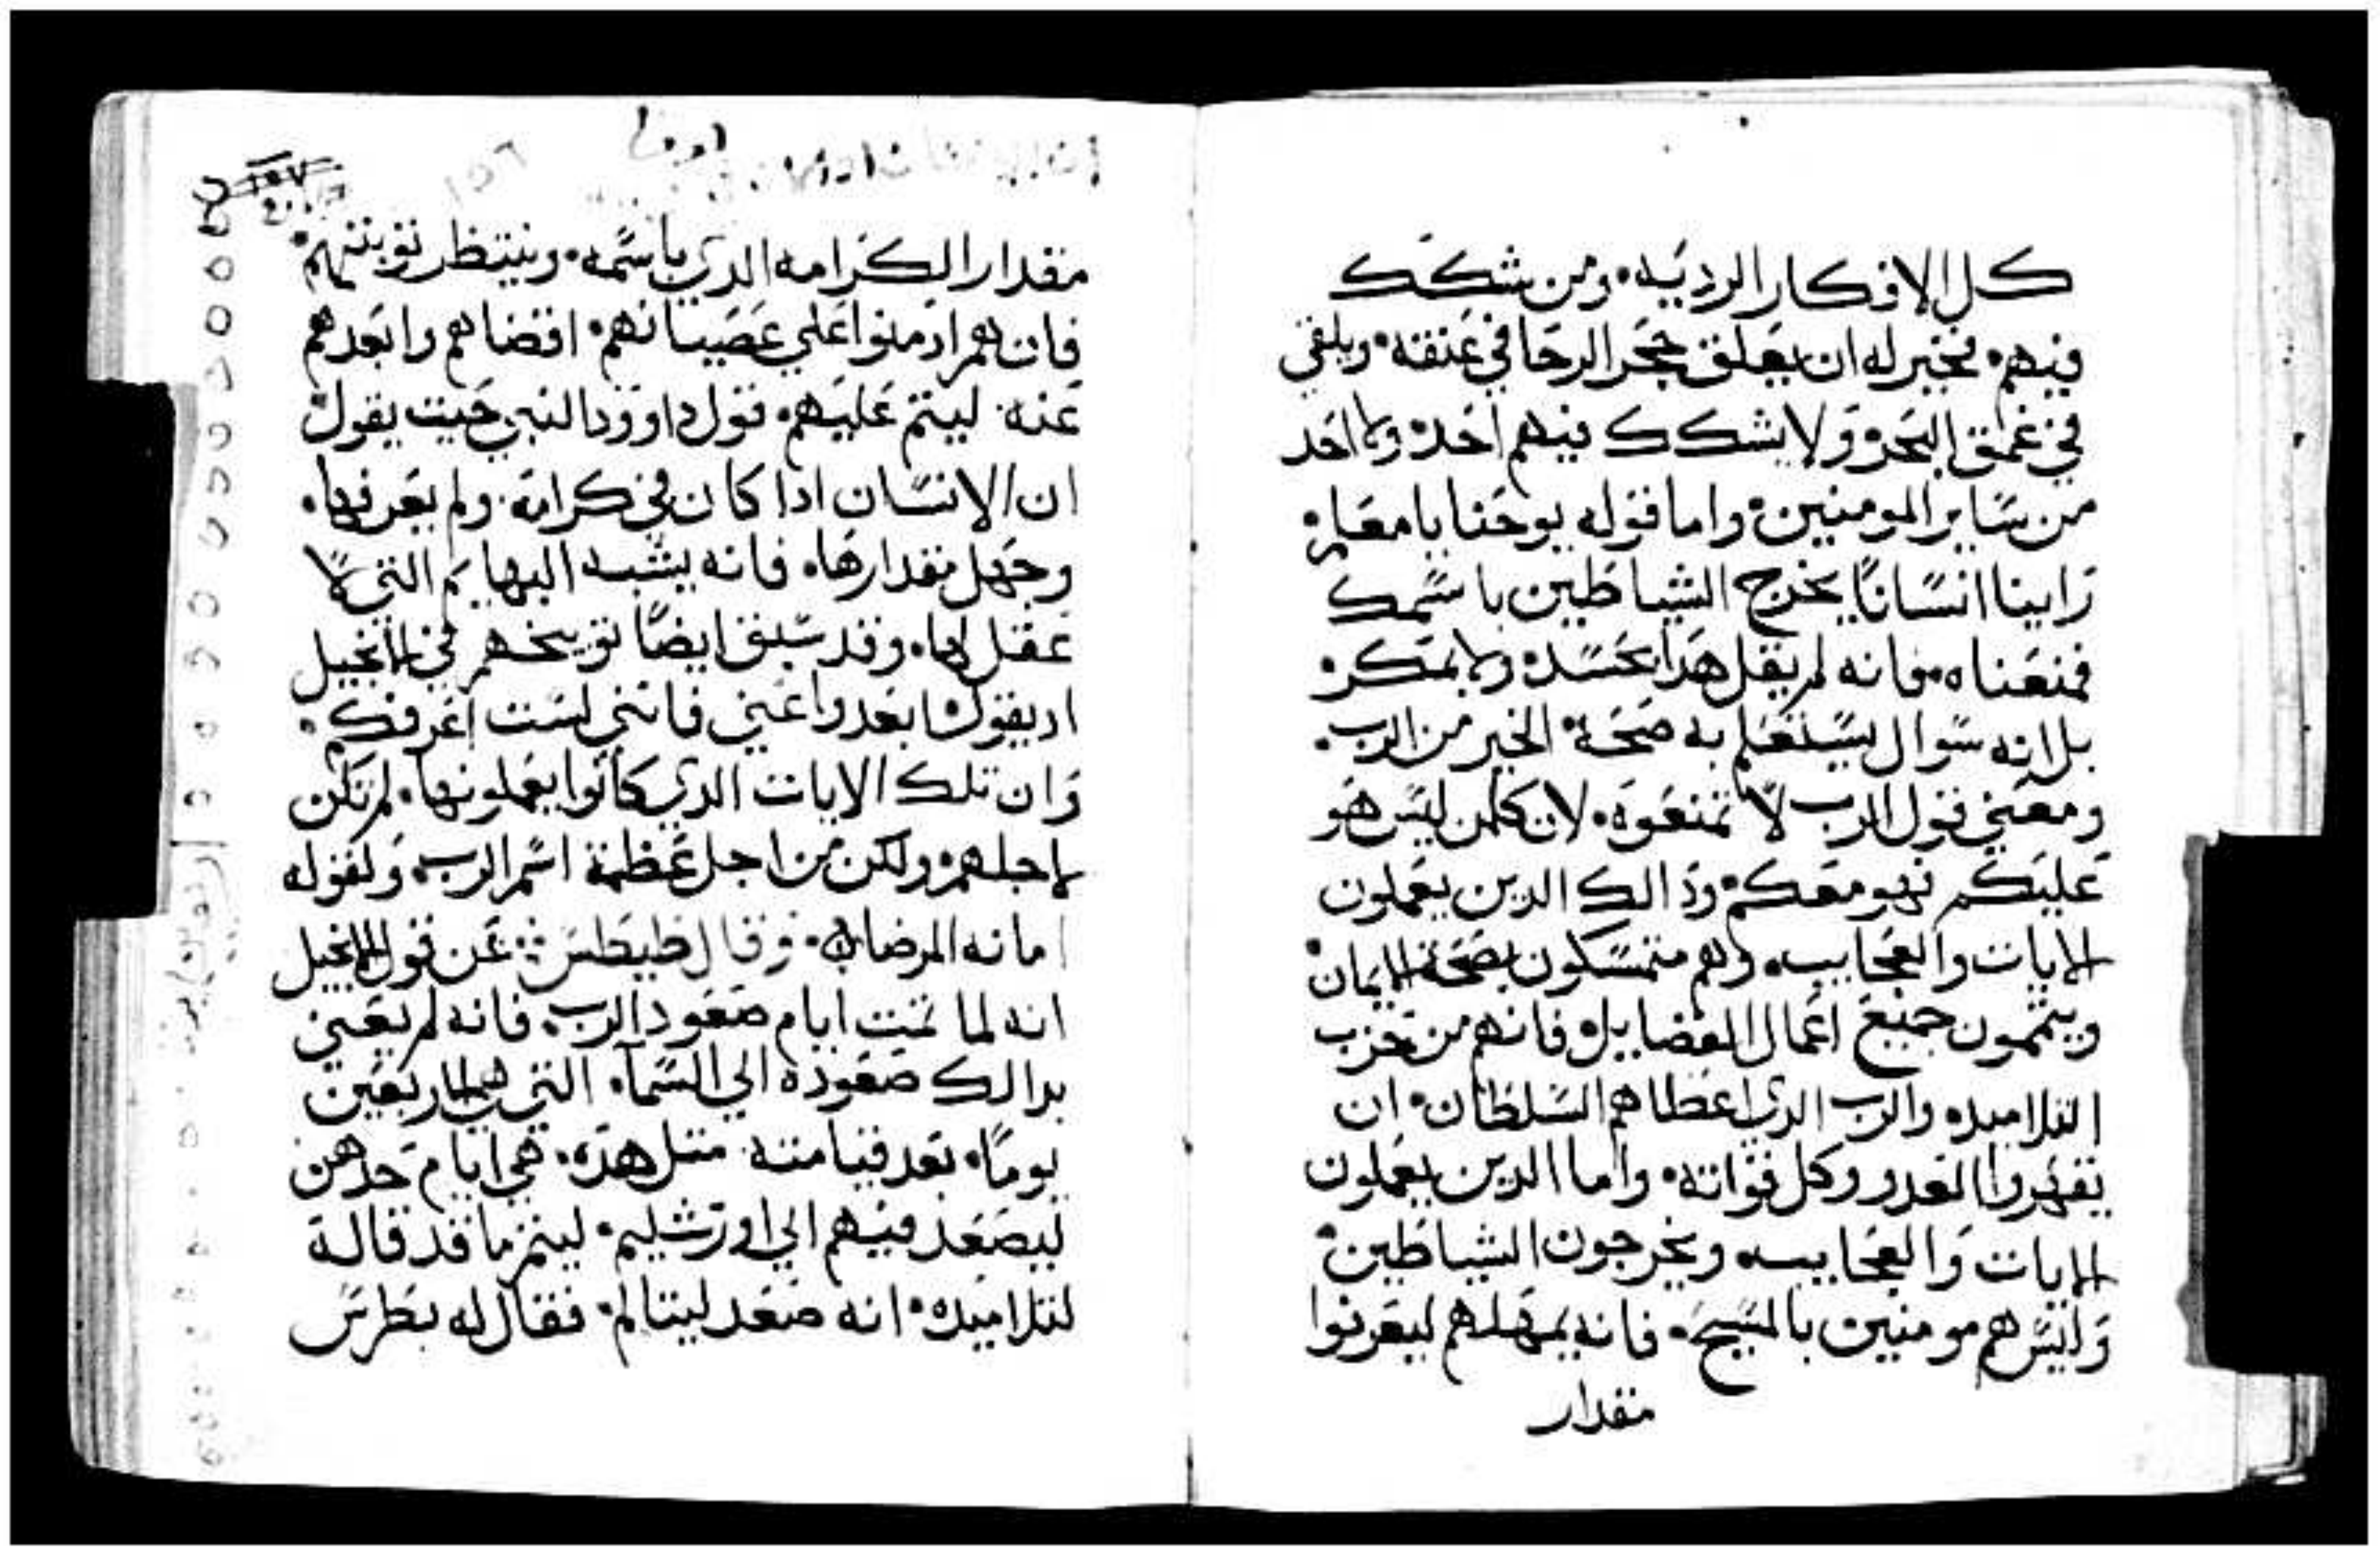 كل الافكار الرديه. ومن شكك
فيهم. فخير له ان يعلق حجر الرحا في عنقه. ويلقي
في عمق البحر. ولا يشكك فيهم احد. ولا احد
من ساير المومنين. واما قوله يوحنا يا معلم.
راينا انسانا يخرج الشياطين باسمك
فمنعناه. فانه لم يقل هدا بحسد. ولا بمكر.
بل انه سوال يستعلم به صحة الخبر من الرب.
ومعني قول الرب لا تمنعوه. لان كلمن ليس هو
عليكم فهو معكم. ودالك الدين يعملون
الايات والعجايب. وهم متمسكون بصحة الايمان.
ويتممون جميع اعمال الفضايل. فانهم من حزب
التلاميد. والرب الدي اعطاهم السلطان. ان
يقهروا العدو وكل قواته. واما الدين يعملون
الايات والعجايب. ويخرجون الشياطين.
وليس هم مومنين بالمسيح. فانه يمهلهم ليعرفوا
مقدار
مقدار الكرامه الدي باسمه. وينتظر توبتهم.
فان هم ادمنوا علي عصيانهم. اقضاهم وابعدهم
عنه. ليتم عليهم. قول داوود النبي حيت يقول.
ان الانسان ادا كان في كرامة. ولم يعرفها.
وجهل مقدارها. فانه يشبه البهايم التي لا
عقل لها. وقد سبق ايضا توبيخهم في الانجيل
اد يقول. ابعدوا عني فانني لست اعرفكم.
وان تلك الايات الدي كانوا يعملونها. لم تكن
لاجلهم. ولكن من اجل عظمة اسم الرب. ولقوله
امانه المرضا. وقال طيطس عن قول الانجيل
انه لما تمت ايام صعود الرب. فانه لم يعني
بدالك صعوده الي السماء التي هي الاربعين
يوما. بعد قيامته. متل هده. هي ايام حدهن
ليصعد فيهم الي اورشليم. ليتم ما قد قالة
لتلاميده. انه صعد ليتالم. فقال له بطرس